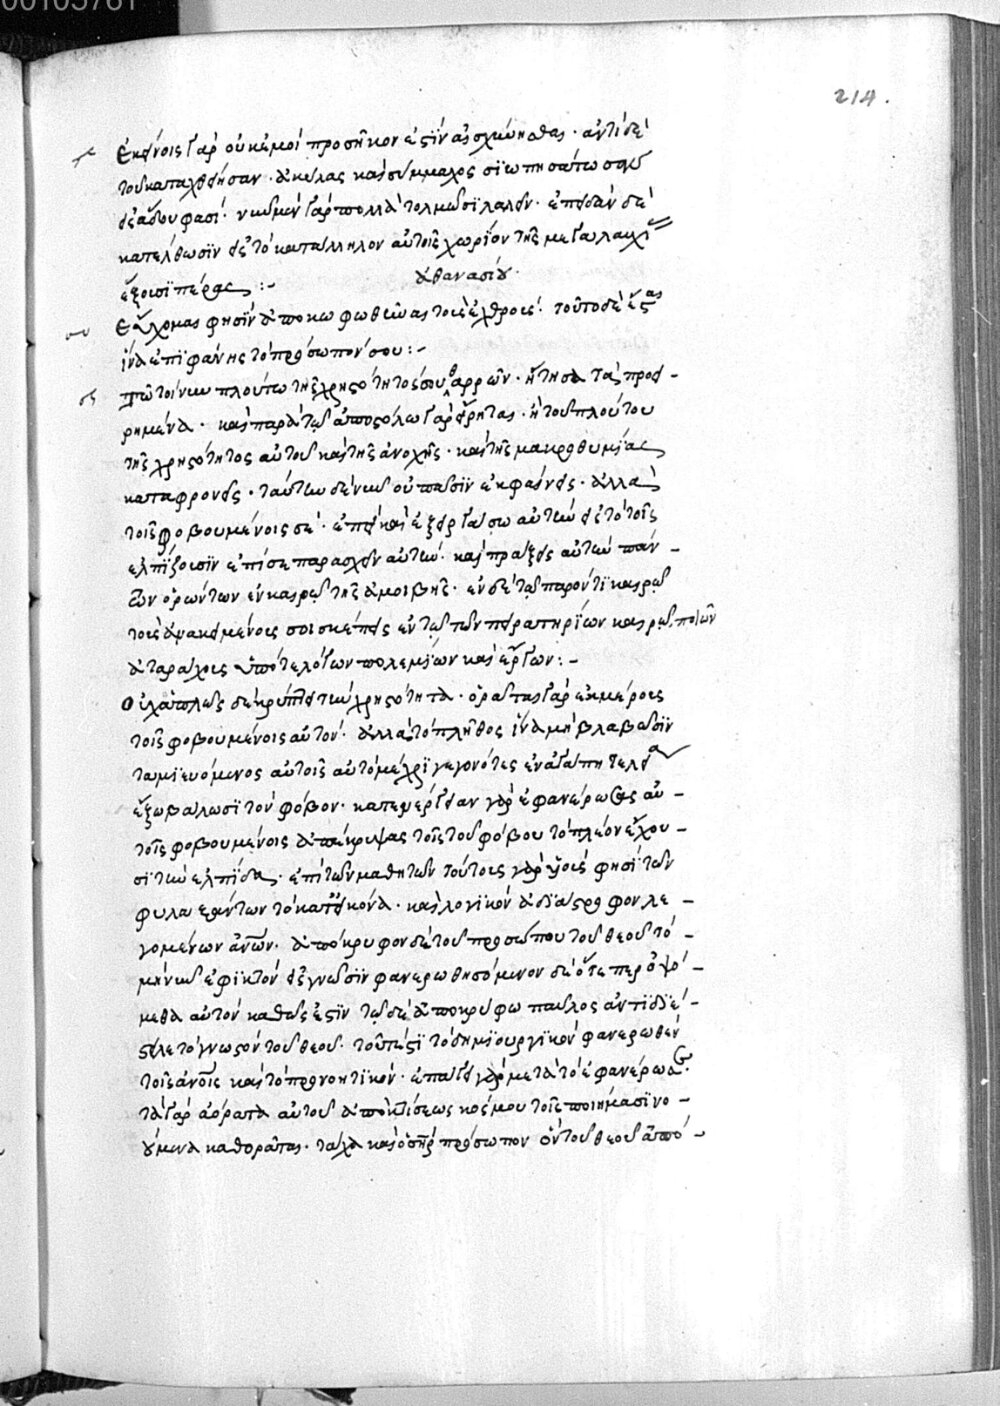 00105761
214.
ἐκείνοις γὰρ οὐκ ἐμοὶ προσῆκον ἐστὶν αἰσχύνησθαι· ἀντὶ δὲ
τοῦ καταχθείησαν· ἀκύλας καὶ σύμμαχος σιωπησάτωσαν
εἰς ᾅδου φασί· νῦν μὲν γὰρ πολλὰ τολμῶσι λαλεῖν· ἐπειδὰν δὲ
κατέλθωσιν εἰς τὸ κατάλληλον αὐτοῖς χωρίον τῆς μεγαλαυχίας
ἕξουσι πέρας :-
ἀθανασίου·
εὔχομαι φησὶν ἀποκωφωθεῖναι τοῖς ἐχθροῖς· τοῦτο δὲ ἔσται
ἵνα ἐπιφάνης τὸ πρόσωπόν σου :-
τῶ πλούτω τῆς χρηστότητός σου θαρρῶν· ἤτησα τὰ προει-
ρημένα· καὶ παρὰ τῶ ἀποστόλω γὰρ εἴρηται· ἢ τοῦ πλούτου
τῆς χρηστότητος αὐτοῦ καὶ τῆς ἀνοχῆς· καὶ τῆς μακροθυμίας
καταφρονεῖς· ταύτην δὲ νῦν οὐ πᾶσιν ἐκφαίνεις· ἀλλὰ
τοῖς φοβουμένοις σε· ἐπεὶ καὶ ἐξειργάσω αὐτὴν εἰς τὸ τοῖς
ἐλπίζουσιν ἐπί σε παρασχεῖν αὐτήν· καὶ πράξεις αὐτὴν πάν-
των ὁρώντων ἐν καιρῶ τῆς ἀμοιβῆς· ἐν δὲ τῶ παρόντι καιρῶ
τοὺς ἀνακειμένους σοι σκέπεις ἐν τῶ τῶν πειρατηρίων καιρῶ, ποιῶν
ἀταράχους ὑπό τε λόγων πολεμίων καὶ ἔργων :-
οὐχ ἁπλῶς δὲ κρύπτει τὴν χρηστότητα· ὁρᾶται γὰρ ἐκ μέρους
τοῖς φοβουμένοις αὐτόν· ἀλλὰ τὸ πλῆθος ἵνα μὴ βλαβῶσιν
ταμιευόμενος αὐτοῖς αὐτὸ μέχρι γεγονότες ἐν ἀγάπη τελεία
ἔξω βάλωσι τὸν φόβον· κατεμέρισεν γὰρ ἐφανέρωσεν αὐ-
τοῖς φοβουμένοις ἀπέκρυψας τοῖς τοῦ φόβου τὸ πλέον ἔχου-
σι τὴν ἐλπίδα· ἐπὶ τῶν μαθητῶν τούτους γὰρ υἱοὺς φησὶ τῶν
φυλαξάντων τὸ κατ' εἰκόνα· καὶ λογικὸν ἀδιάστροφον λε-
γομένων ἀνων· ἀπόκρυφον δὲ τοῦ προσώπου τοῦ θεοῦ τὸ
μὴ νῦν ἐφικτὸν εἰς γνῶσιν φανερωθησόμενον δὲ ὅτε περ ὀψό-
μεθα αὐτὸν καθώς ἐστιν τῶ δὲ ἀποκρύφω παῦλος ἀντιδιέ-
στειλε τὸ γνωστὸν τοῦ θεοῦ· τουτέστι τὸ δημιουργικὸν φανερωθὲν
τοῖς ἀνοις καὶ τὸ προνοητικόν· ἐπάγει γὰρ μετὰ τὸ ἐφανέρωσεν·
τὰ γὰρ ἀόρατα αὐτοῦ ἀπὸ κτίσεως κόσμου τοῖς ποιήμασι νο-
ούμενα καθορᾶται· τάχα καὶ ὁ σηρ πρόσωπον ὂν τοῦ θεοῦ ἀπό-